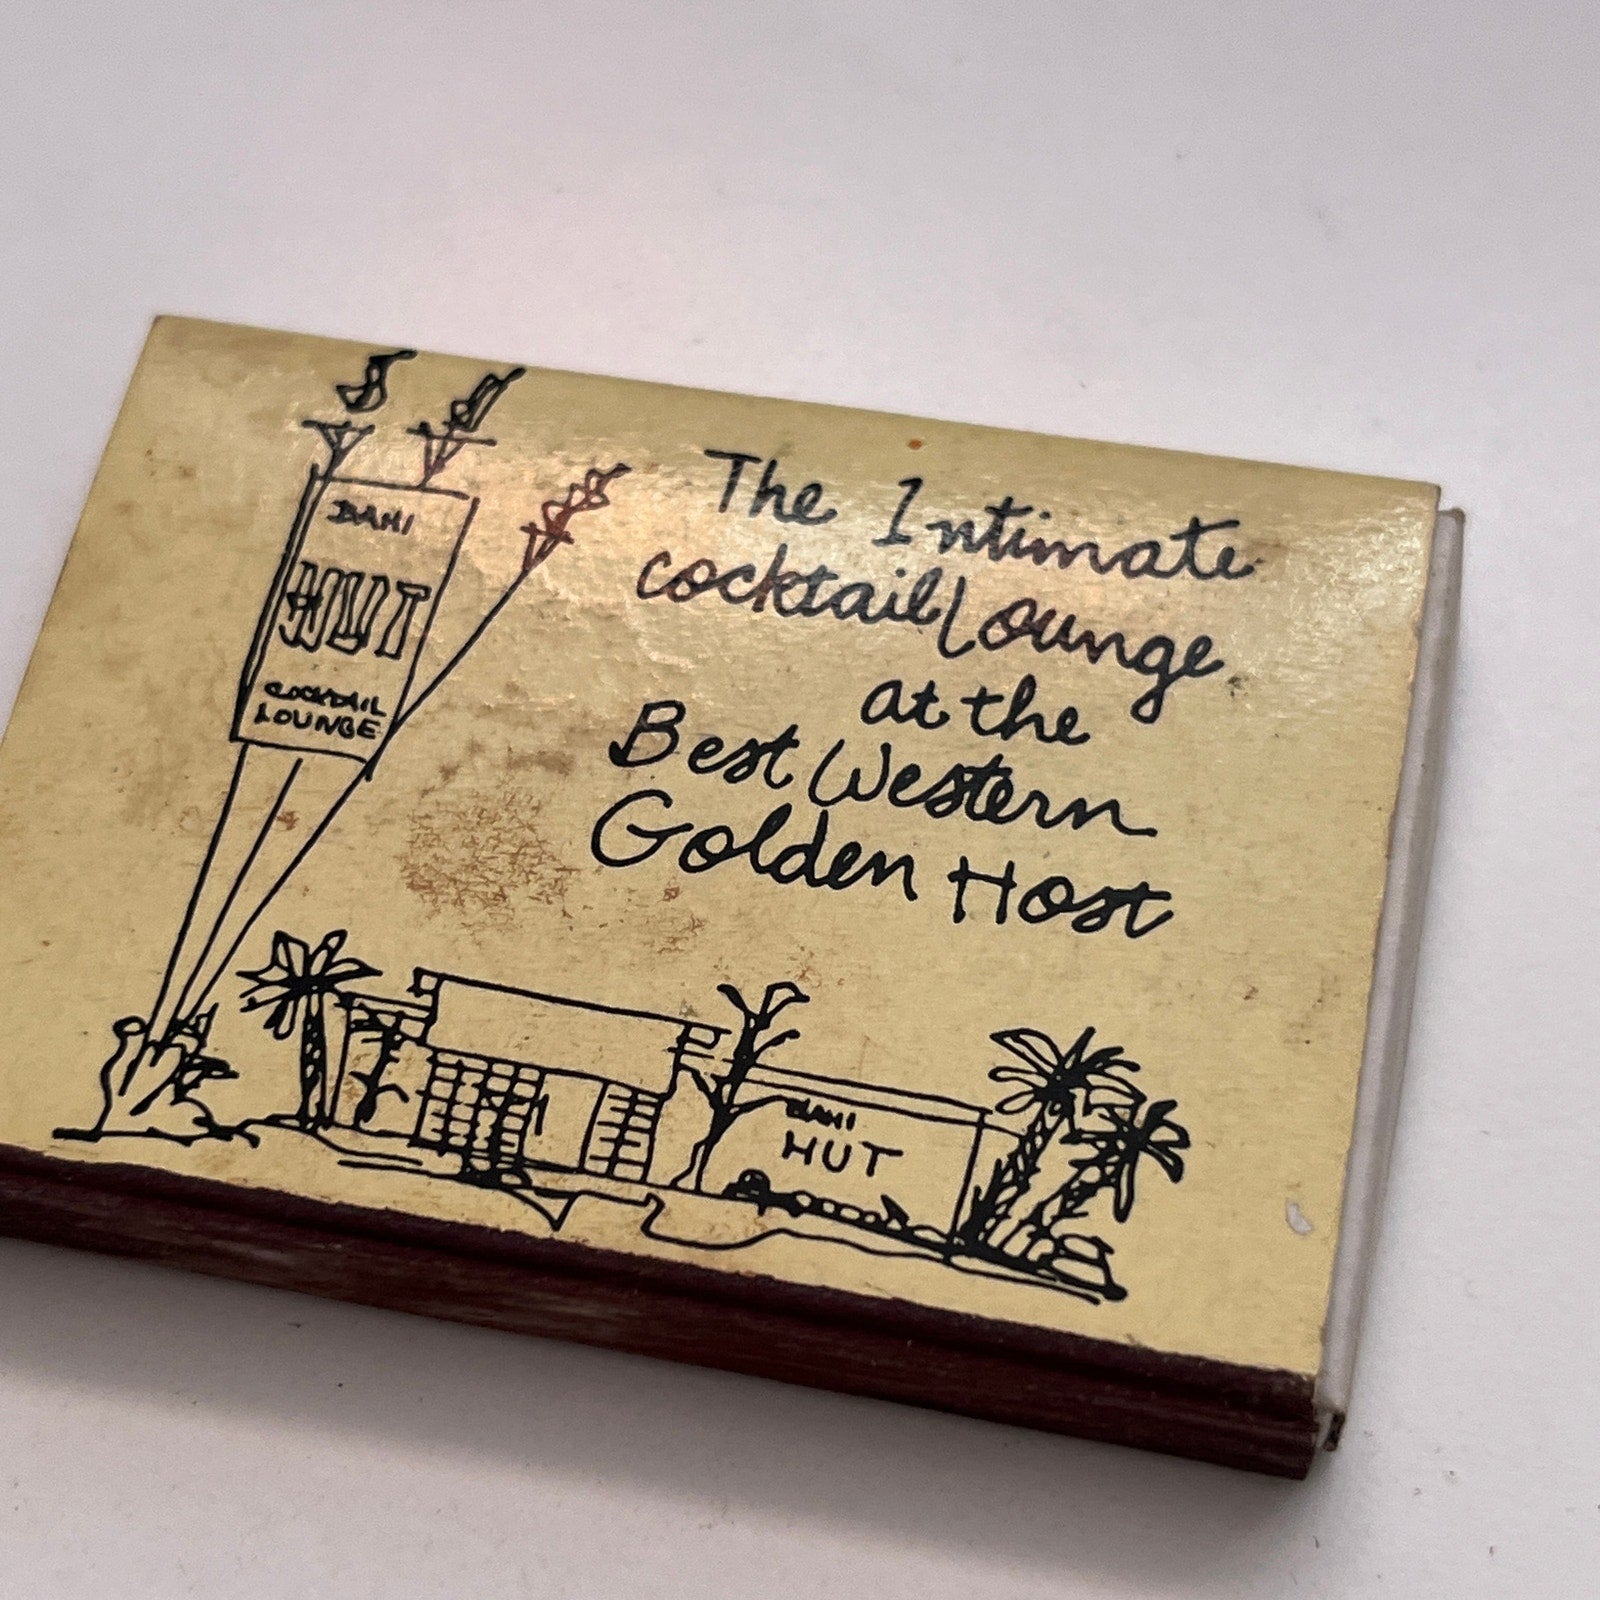 BAHI
HUT
COCKTAIL
LOUNGE
The Intimate
cocktail Lounge
at the
Best Western
Golden Host
BAHI
HUT